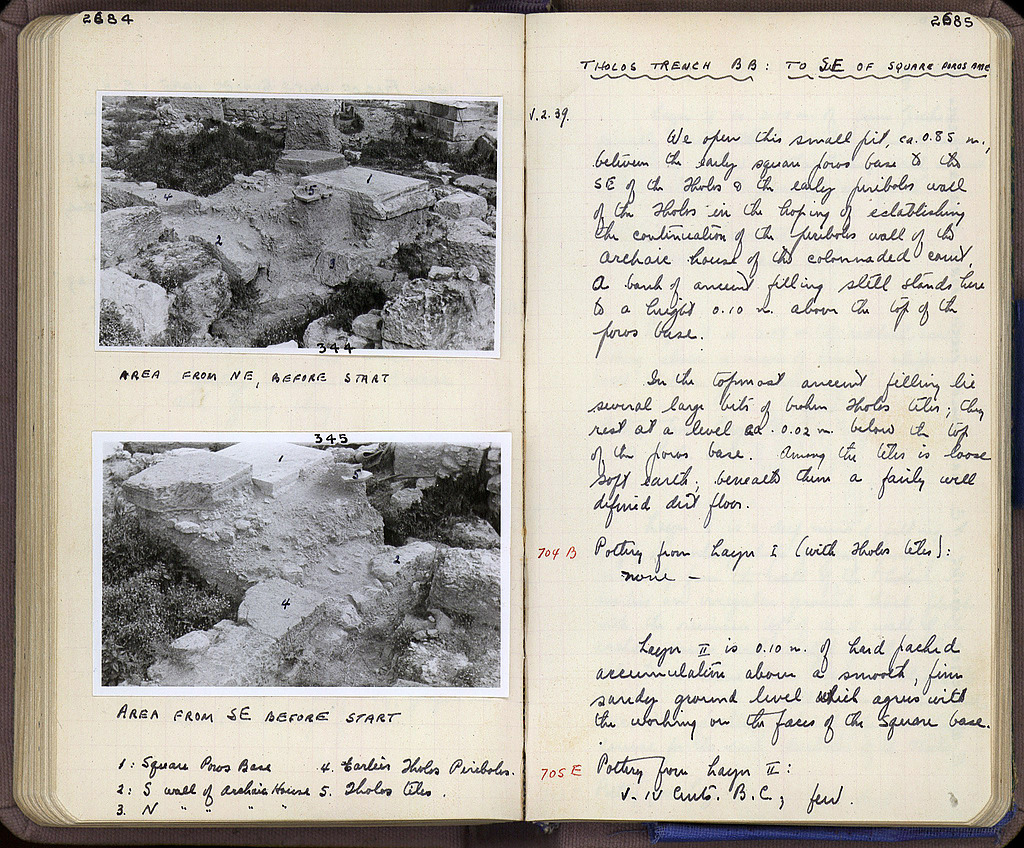 2684
4
1
5
2
3
344
AREA FROM NE, BEFORE START
345
1
5
2
4
AREA FROM SE BEFORE START
1: Square Poros Base 4. Earlier Tholos Peribolos.
2: S wall of Archaic House 5. Tholos tiles.
3. N " " " "
2685
THOLOS TRENCH BB: TO SE OF SQUARE POROS BASE
V.2.39.
We open this small pit, ca. 0.85 m.,
between the early square poros base to the
SE of the Tholos & the early peribolos wall
of the Tholos in the hoping of establishing
the continuation of the peribolos wall of the
archaic house of the colonnaded court.
A bank of ancient filling still stands here
to a height 0.10 m. above the top of the
poros base.
In the topmost ancient filling lie
several large bits of broken Tholos tiles; they
rest at a level ca. 0.02 m. below the top
of the poros base. Among the tiles is loose
soft earth; beneath them a fairly well
defined dirt floor.
704 B Pottery from Layer I (with Tholos tiles):
none —
Layer II is 0.10 m. of hard packed
accumulation above a smooth, firm
sandy ground level which agrees with
the working on the faces of the square base.
705 E Pottery from Layer II:
V-IV Cents. B.C.; few.